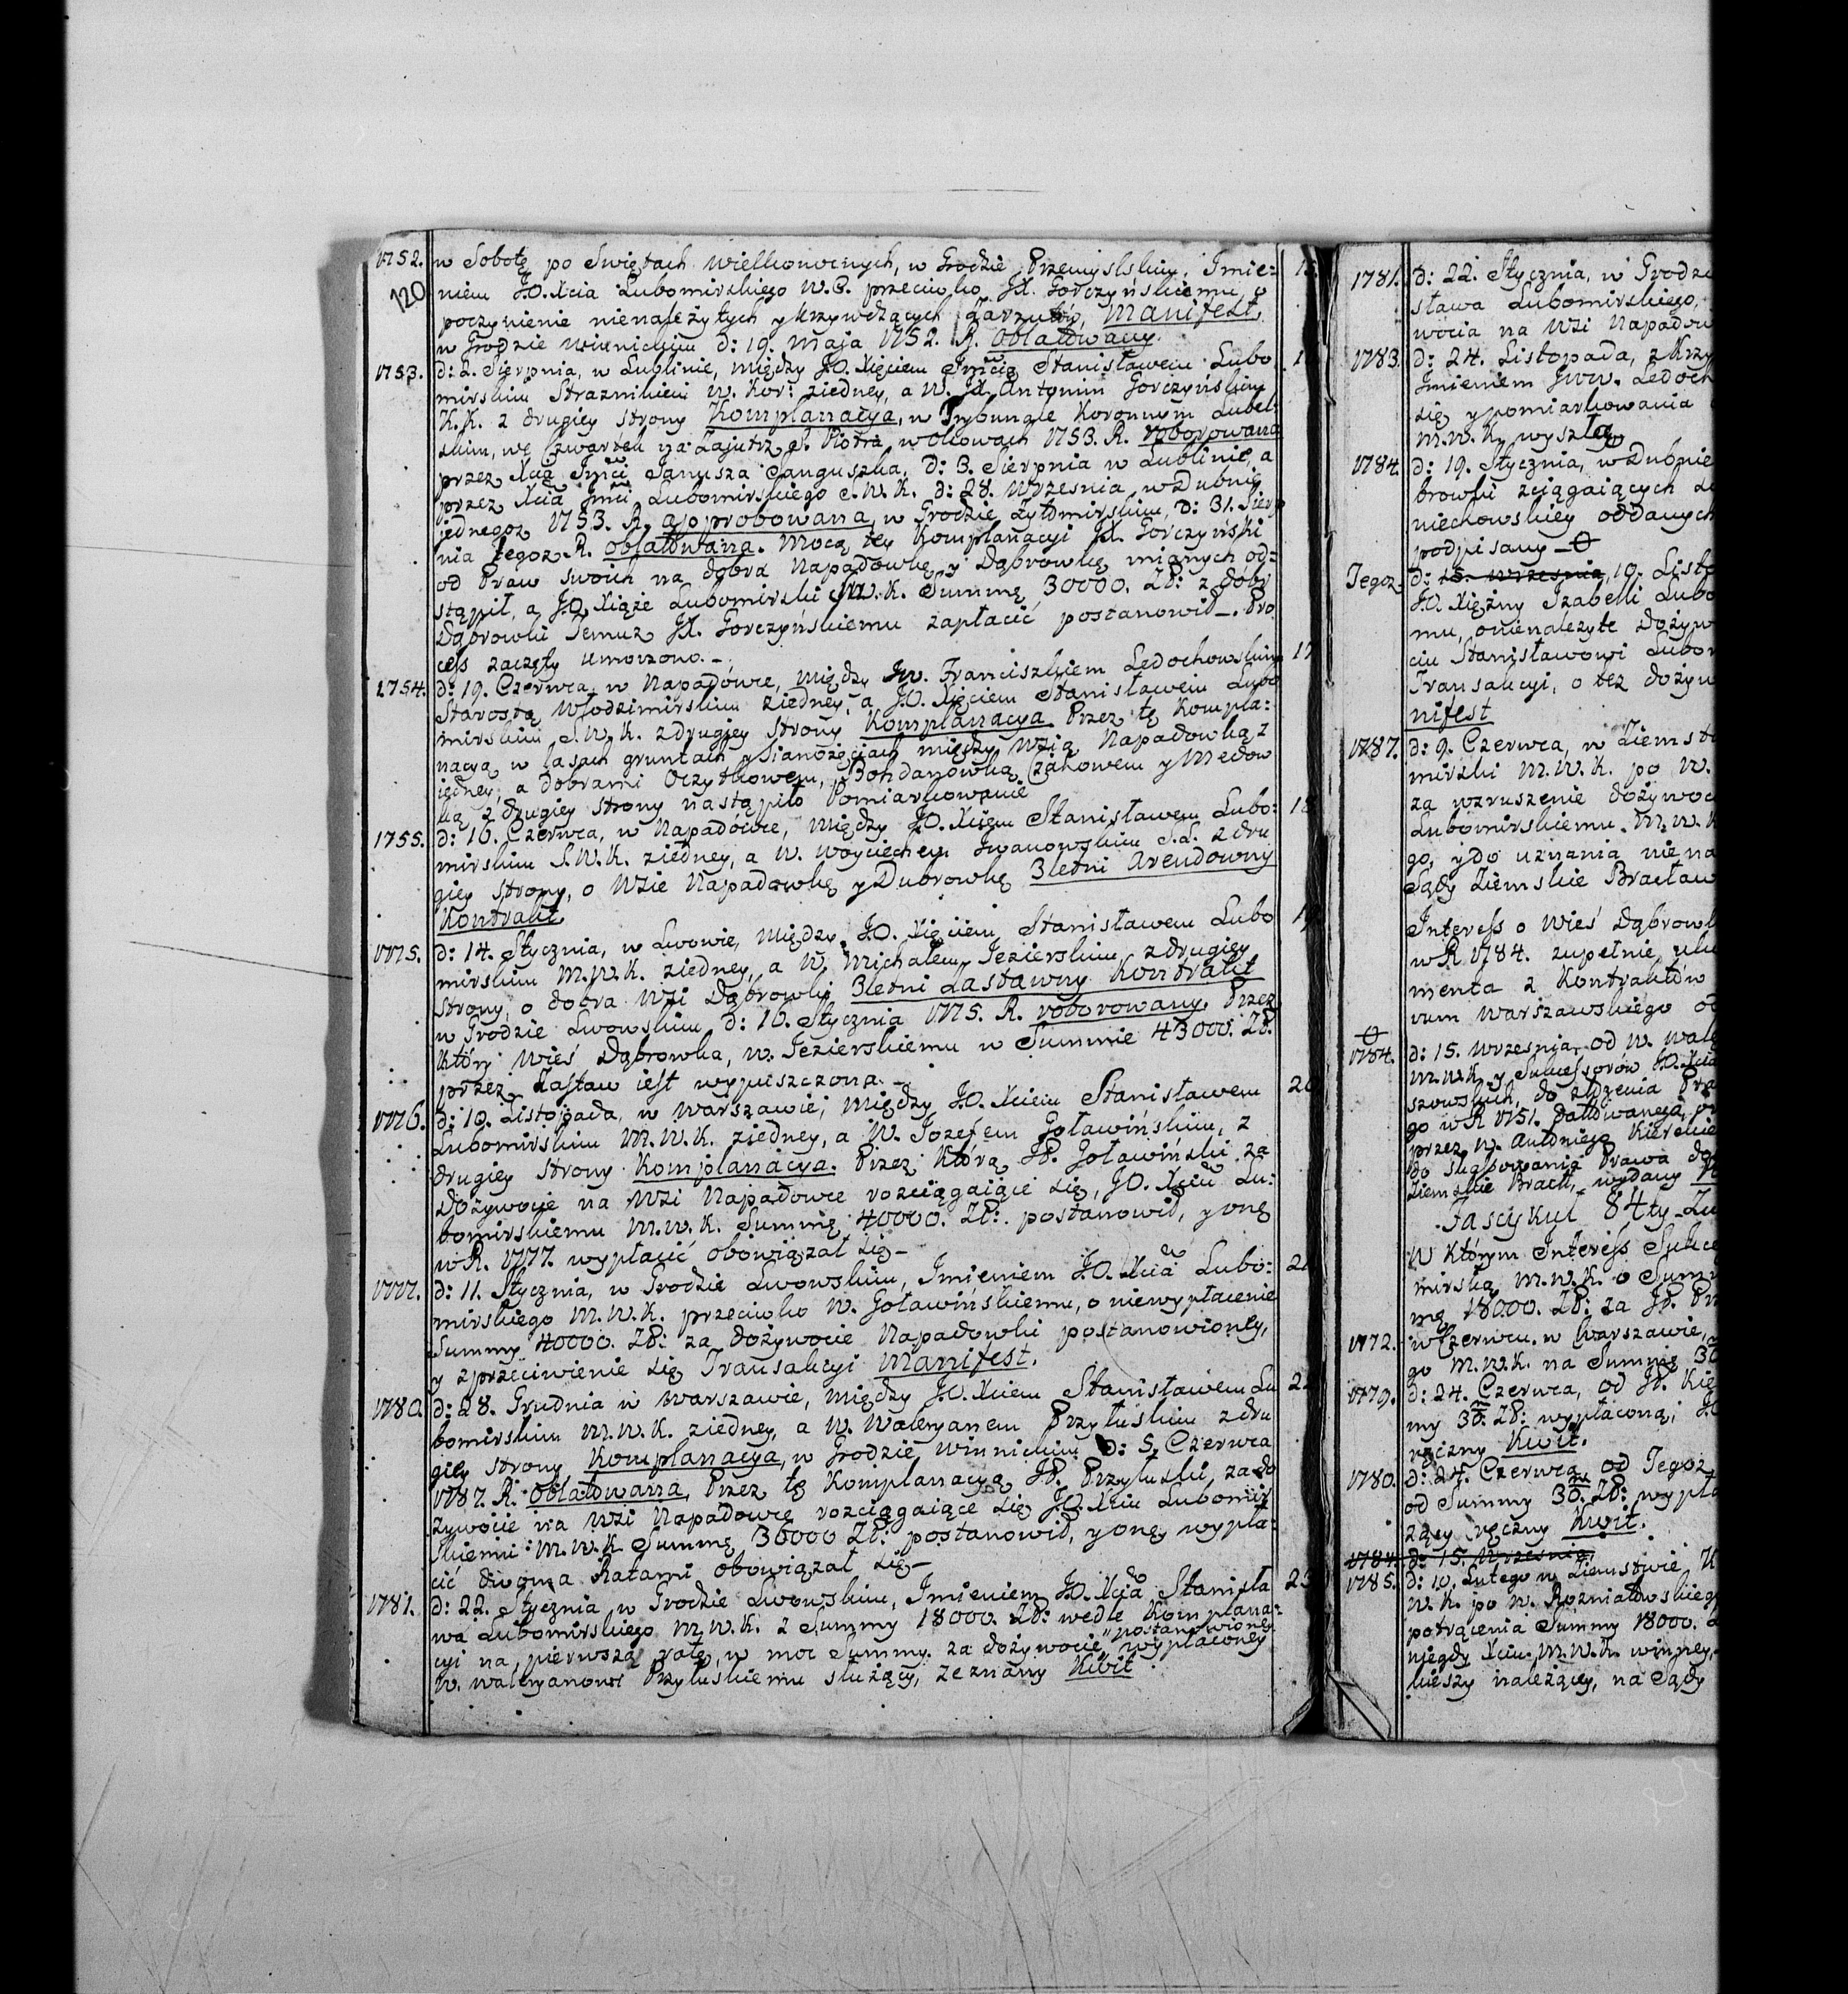 1752. w Sobotę po Swiętach wielkonocnych, w Grodzie Przemyslskim, Jmie: 15
120 niem J.O. Xcia Lubomirskiego W.B. przeciwko JX. Gorczyńskiemu, o
poczynienie nienależytych y krzywdzących zarzutów, Manifest,
w Grodzie winnickim d: 19. maja 1752. R. Oblatowany.
1753. d: 2. Sierpnia, w Lublinie, między J.O. Xięciem Jmcią Stanisławem Lubo
mirskim Straznikiem W. Kor: ziedney, a W. JX. Antonim Gorczyńskim
K.K. z drugiey strony Komplanacya, w Trybunale Koronnym Lubel:
skim, we Czwartek na Zajutrz S. Piotra w okowach 1753. R. roborowana
przez Xcia Jmci Janusza Sanguszka, d: 3. Sierpnia w Lublinie, a
przez Xcia Jmci Lubomirskiego S.W.K. d: 28. Wrzesnia w Dubnie
jednegoz 1753. R. approbowana, w Grodzie Zytomirskim, D: 31. Sierp
nia tegoz R. oblatowana. Mocą tey Komplanacyi JX. Gorczyński
od Praw swoich na dobra Napadowkę y Dąbrowkę mianych od:
stąpił, a J.O. Xiąże Lubomirski S.W.K. Summę 30000. Zł: z dobr
Dąbrowki Temuz JX. Gorczyńskiemu zapłacić postanowił. Pro
cess zaczęty umorzono.
1754. d: 19. Czerwca w Napadówce, między Jw. Franciszkiem Ledochowskim 17
Starostą Włodzimirskim ziedney, a J.O. Xięciem Stanisławem Lubo
mirskim S.W.K. zdrugiey strony Komplanacya. Przez tę Kompla:
nacyą w lasach gruntach y sianożęciach między Wsią Napadowką z
iedney, a dobrami Oczytkowem, Bohdanówką Czahowem y Medow
ką z drugiey strony nastąpiło Pomiarkowanie
1755. d: 10. Czerwca, w Napadówce, między J.O. Xciem Stanisławem Lubo: 18
mirskim S.W.K. ziedney, a W. Woyciechem Jwanowskim S.L. z dru
giey strony, o Wsie Napadowkę y Dubrowkę 3letni Arendowny
Kontrakt.
1775. d: 14. Stycznia, w Lwowie, między J.O. Xięciem Stanisławem Lubo 19
mirskim M.W.K. ziedney, a W. Michałem Jezierskim, zdrugiey
strony, o dobra Wsi Dąbrowki 3letni Zastawny Kontrakt
w Grodzie Lwowskim d: 16. Stycznia 1775. R. roborowany. Przez
który Wieś Dąbrowka, w. Jezierskiemu w Summie 43000. Zł:
przez Zastaw iest wypuszczona.
1776. d: 10. Listopada, w Warszawie, między J.O. Xciem Stanisławem 20
Lubomirskim M.W.K. ziedney, a W. Jozefem Goławińskim, z
drugiey strony Komplanacya. Przez którą JP. Goławiński za
Dożywocie na Wsi Napadowce rozciągaiące się, J.O. Xciu Lu:
bomirskiemu M.W.K. Summę 40000. Zł: postanowił, y onę
w R. 1777. wypłacić obowiązał się
1777. d: 11. Stycznia, w Grodzie Lwowskim, Jmieniem J.O. Xcia Lubo: 21
mirskiego M.W.K. przeciwko W. Goławińskiemu, o niewypłacenie
Summy 40000. Zł: za dożywocie Napadowki postanowioney,
y zprzeciwienie się Transakcyi Manifest.
1780. d: 28. Grudnia w Warszawie, między J.O. Xciem Stanisławem Lu 22
bomirskim M.W.K. ziedney, a W. Waleryanem Przyłuskim zdru
giey strony Komplanacya, w Grodzie Winnickim D: 5. Czerwca
1787. R. Oblatowana. Przez tę Komplanacyą JP. Przyłuski, za do
żywocie na Wsi Napadowcę rozciągaiące się J.O. Xciu Lubomir
skiemu M.W.K. Summę 36000 Zł: postanowił, y onę wypła:
cić dwoma Ratami obowiązał się
1781. d: 22. Stycznia, w Grodzie Lwowskim, Jmieniem J.O. Xcia Stanisła 23
wa Lubomirskiego M.W.K. z Summy 18000. Zł: wedle Komplana:
cyi na pierwszą ratę, w moc Summy za dożywocie postanowioney wypłaconey
W. Waleryanowi Przyłuskiemu służący, zeznany Kwit.
1781. d: 22. Stycznia, w Grodzi
sława Lubomirskiego,
wocia na Wsi Napadow
1783. d: 24. Listopada, z Krzy
Jmieniem Jww. Ledoch
się y pomiarkowania
M.W.K. wyszłey
1784. d: 19. Stycznia, w Dubnie
browki zciągaiących
niechowskiey oddanych
podpisany
Tegoz d: 15. Wrzesnia, 10. Listo
J.O. Xiężny Jzabelli Lubo
mu, o nienależyte dożyw
ciu Stanisławowi Lubom
Transakcyi, o też dożyw
nifest
1787. d: 9. Czerwca, w Ziemst
mirski M.W.K. po W.
za wzruszenie dożywoc
Lubomirskiemu M.W.K
go, y do uznania niena
Sądy Ziemskie Bracław
Jnteress o Wieś Dąbrowk
w R 1784. zupełnie uku
menta z Kontraktów
rum Warszawskiego od
1784. d: 15. Wrzesnia, od W. Wale
M.W.K. y Sukcessorów J.O. Xcia
szowskich, do
go w R 1751. datowanego,
przez W. Antoniego Kierskie
do Prawa do
Ziemskie Bracł. wydany
Fascykuł 84ty
W którym Jnteress Sukce
mirską M.W.K. o Summ
mę 18000. Zł: za JP. Pr
1772. w Czerwcu. w Warszawie,
go M.W.K. na Summę 30
1779. d: 24. Czerwca, od JP. Kię
my 30. Zł: wypłaconą,
ręczny Kwit.
1780. d: 24. Czerwca, od Tegoz
od Summy 30. Zł: wypła
zący ręczny Kwit.
1784. d: 15. Wrzesnia,
1785. d: 10. Lutego w Ziemstwie
W.K. po W. Rozniatowskiego
potrącenia Summy 18000.
niegdy Xciu M.W.K. winney,
kieszy należący, na Sądy